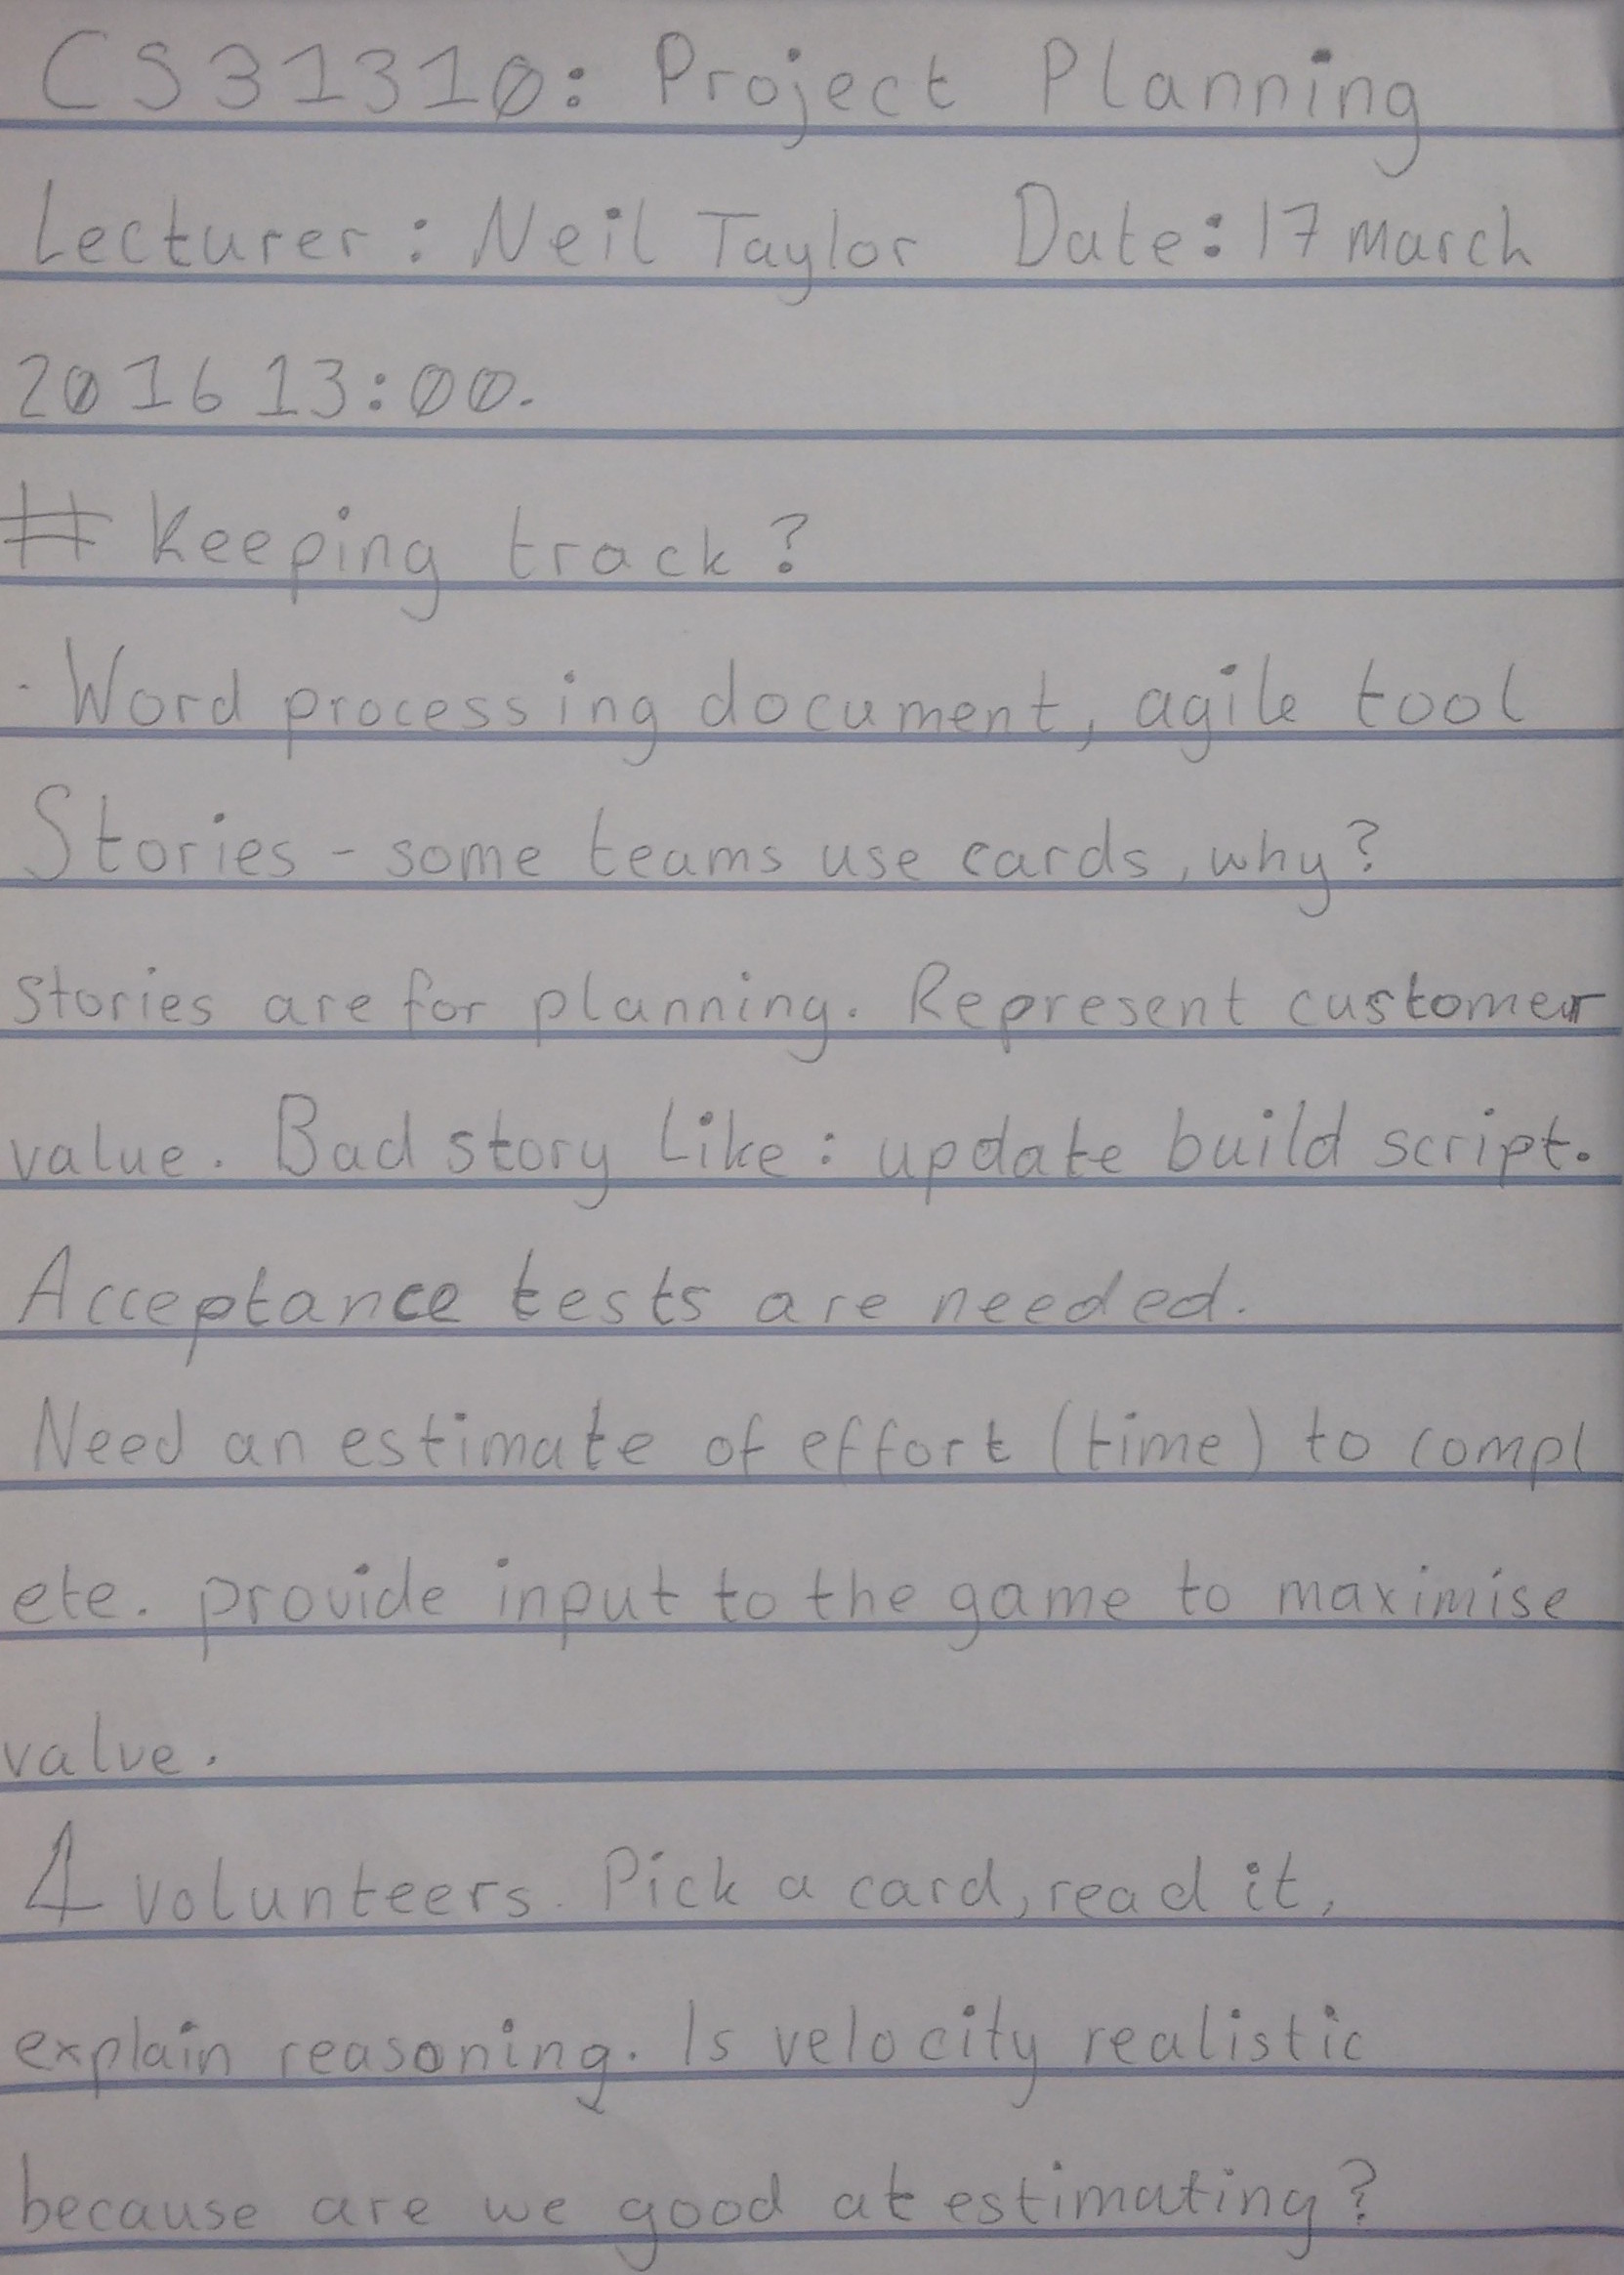 CS31310: Project Planning
Lecturer: Neil Taylor Date: 17 March
2016 13:00.
# Keeping track?
- Word processing document, agile tool
Stories - some teams use cards, why?
stories are for planning. Represent customer
value. Bad story like: update build script.
Acceptance tests are needed.
Need an estimate of effort (time) to compl
ete. provide input to the game to maximise
value.
4 volunteers. Pick a card, read it,
explain reasoning. Is velocity realistic
because are we good at estimating?